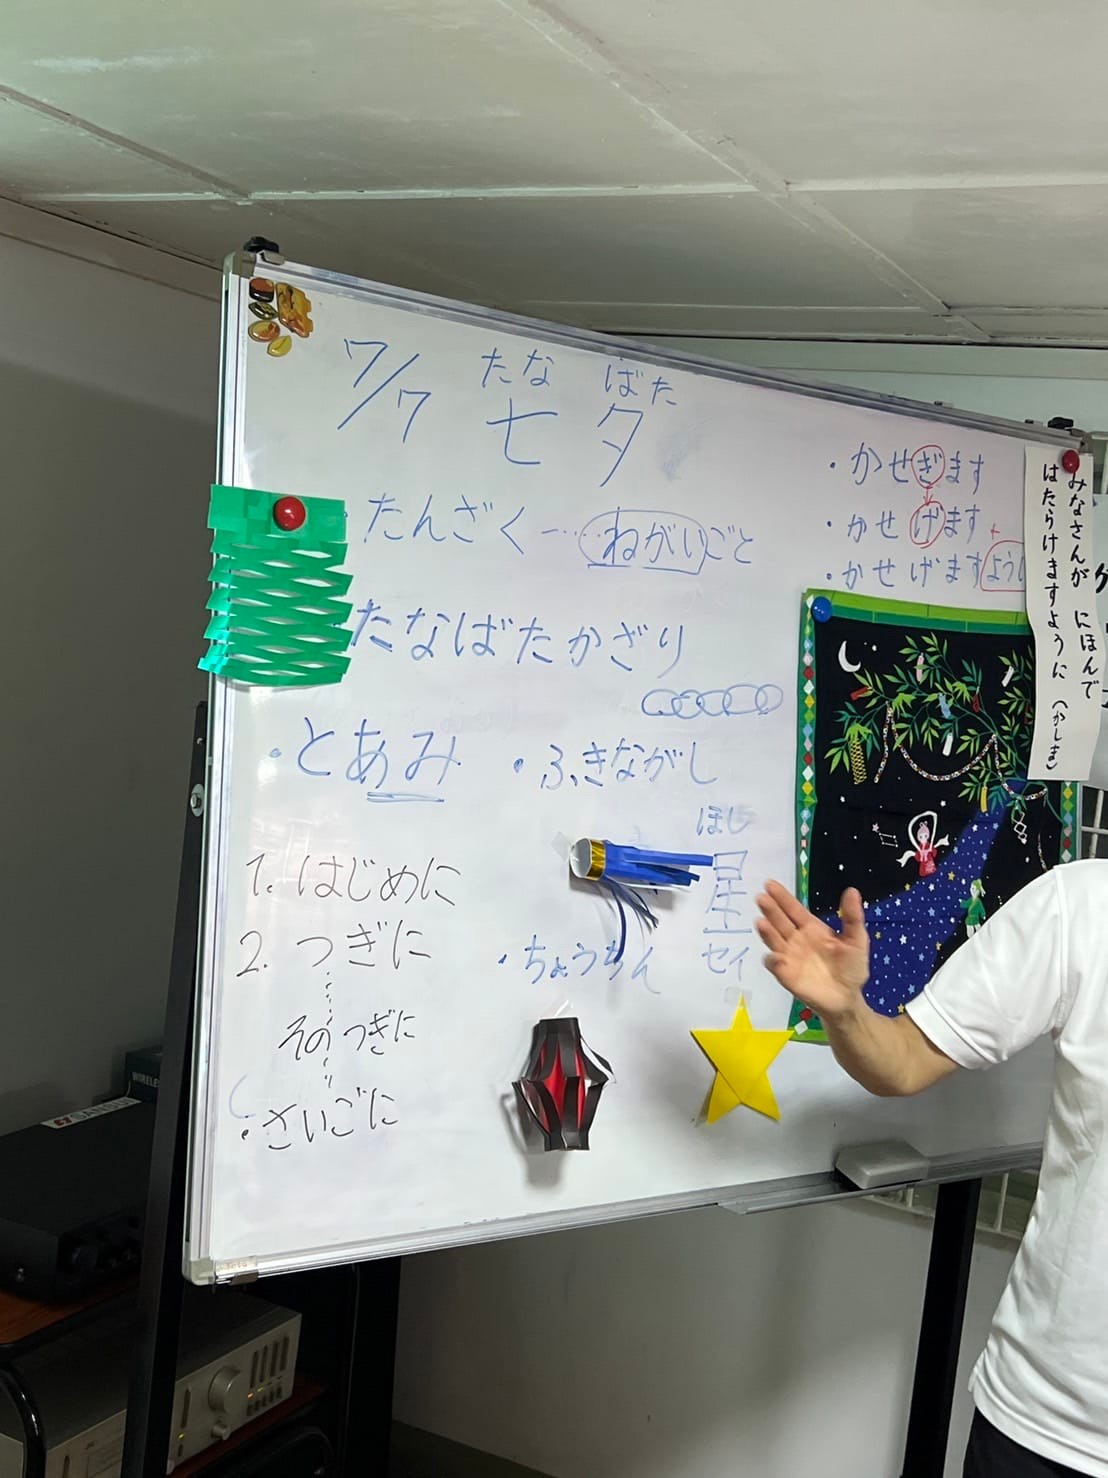 7/7
たなばた
七夕
たんざく……ねがいごと
たなばたかざり
・とあみ
・ふきながし
ほし
星
セイ
・ちょうちん
1. はじめに
2. つぎに
そのつぎに
・さいごに
・かせぎます
・かせげます
・かせげますよう
みなさんが にほんで
はたらけますように (かしま)
WIRELE
SANSUI